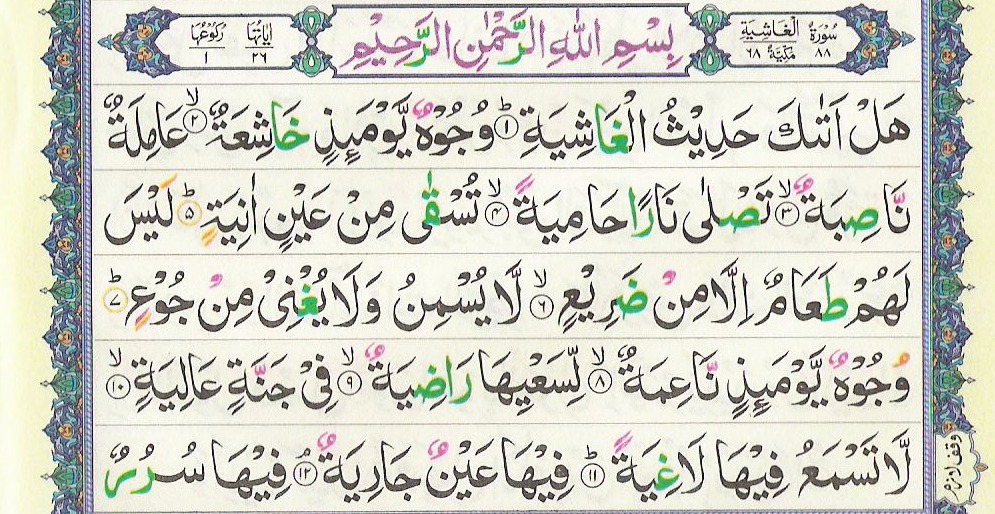 سُوْرَةُ الْغَاشِيَةِ مَكِّيَّةٌ ٨٨ ٦٨
بِسْمِ اللّٰهِ الرَّحْمٰنِ الرَّحِيْمِ
اٰيَاتُهَا ٢٦ رُكُوْعُهَا ١
هَلْ اَتٰىكَ حَدِيْثُ الْغَاشِيَةِ ؕ‏﴿۱﴾ وُجُوْهٌ يَّوْمَىِٕذٍ خَاشِعَةٌ ۙ‏﴿۲﴾ عَامِلَةٌ
نَّاصِبَةٌ ۙ‏﴿۳﴾ تَصْلٰى نَارًا حَامِيَةً ۙ‏﴿۴﴾ تُسْقٰى مِنْ عَيْنٍ اٰنِيَةٍ ؕ‏﴿۵﴾ لَيْسَ
لَهُمْ طَعَامٌ اِلَّا مِنْ ضَرِيْعٍ ۙ‏﴿۶﴾ لَّا يُسْمِنُ وَلَا يُغْنِىْ مِنْ جُوْعٍ ؕ‏﴿۷﴾
وُجُوْهٌ يَّوْمَىِٕذٍ نَّاعِمَةٌ ۙ‏﴿۸﴾ لِّسَعْيِهَا رَاضِيَةٌ ۙ‏﴿۹﴾ فِىْ جَنَّةٍ عَالِيَةٍ ۙ‏﴿۱۰﴾
لَّا تَسْمَعُ فِيْهَا لَاغِيَةً ؕ‏﴿۱۱﴾ فِيْهَا عَيْنٌ جَارِيَةٌ ۘ‏﴿۱۲﴾ فِيْهَا سُرُرٌ
وقف لازم